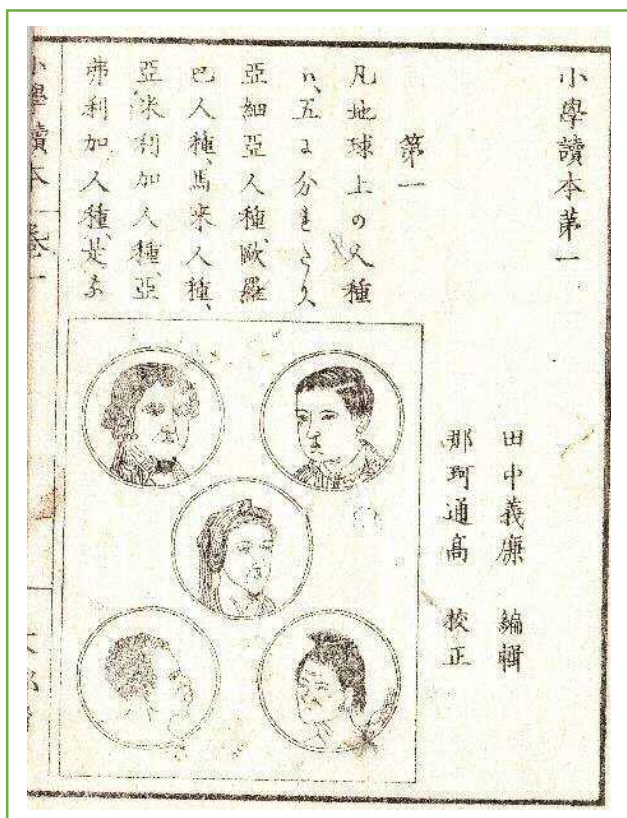 小學讀本苐一
田中義廉 編輯
那珂通高 校正
苐一
凡地球上の人種
ハ、五に分れたり、
亞細亞人種、歐羅
巴人種、馬來人種、
亞米利加人種、亞
弗利加人種、是な
小學讀本 卷一